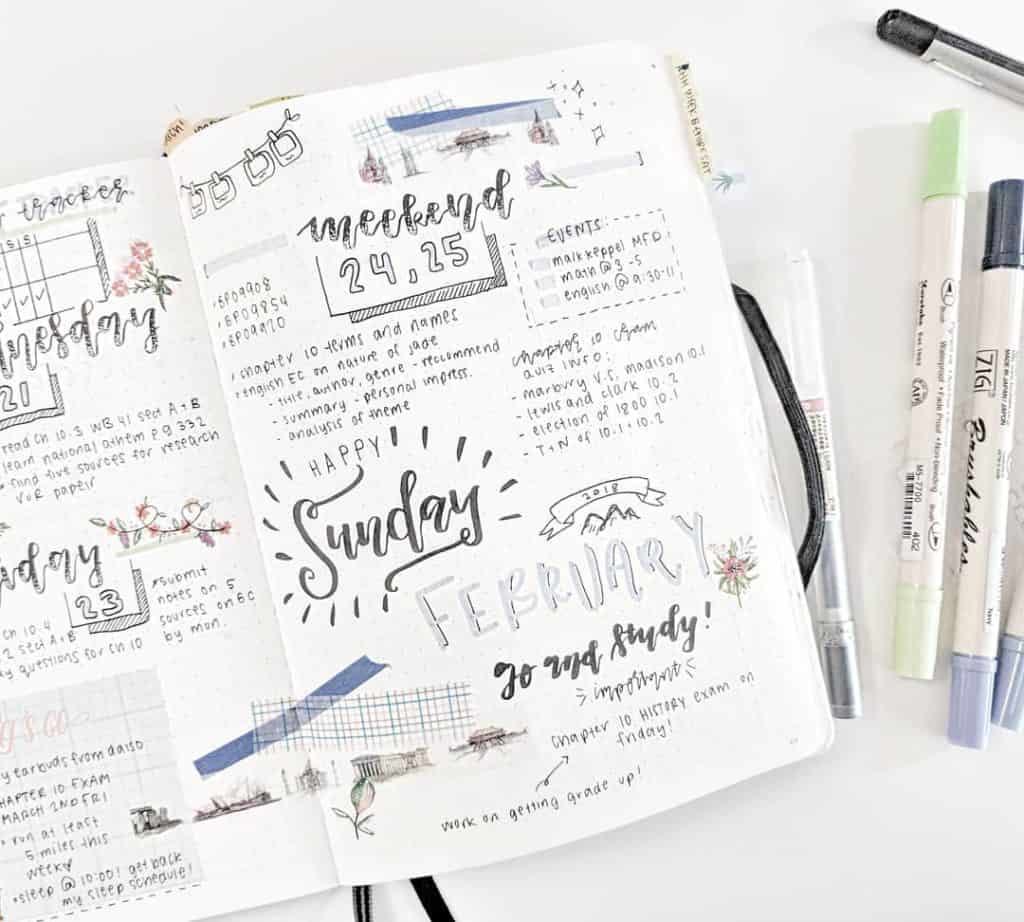 tracker
S S
nesday
21
read Ch 10.3 WB 41 sect A+B
learn national athem pg 332
find five sources for research
VOR paper
day
23
*submit
notes on 5
sources on BC
by mon.
Ch 10.4
2 sect A+B
questions for Ch 10
's GO
y earbuds from daiso
CHAPTER 10 EXAM
MARCH 2ND FRI!
run at least
5 miles this
week
*sleep @ 10:00! get back
my sleep schedule!
weekend
24, 25
EVENTS:
mark keppel MFD!
math @ 3-5
english @ 9:30-11
BP09908
BP09854
chapter 10 terms and names
english EC on nature of jade
- title, author, genre - recommend
- summary - personal impress.
- analysis of theme
chapter 10 exam
quiz info:
- marbury v.s. madison 10.1
- lewis and clark 10.2
- election of 1800 10.1
- T+N of 10.1+10.2
HAPPY
Sunday
2018
FEBRUARY
go and study!
important
Chapter 10 HISTORY exam on
friday!
work on getting grade up!
WEEK BEFORE SAT
Kuretake
Waterproof • Fade Proof • Non-bleeding
MS-7700
402
ZIG
MADE IN JAPAN
Brushables